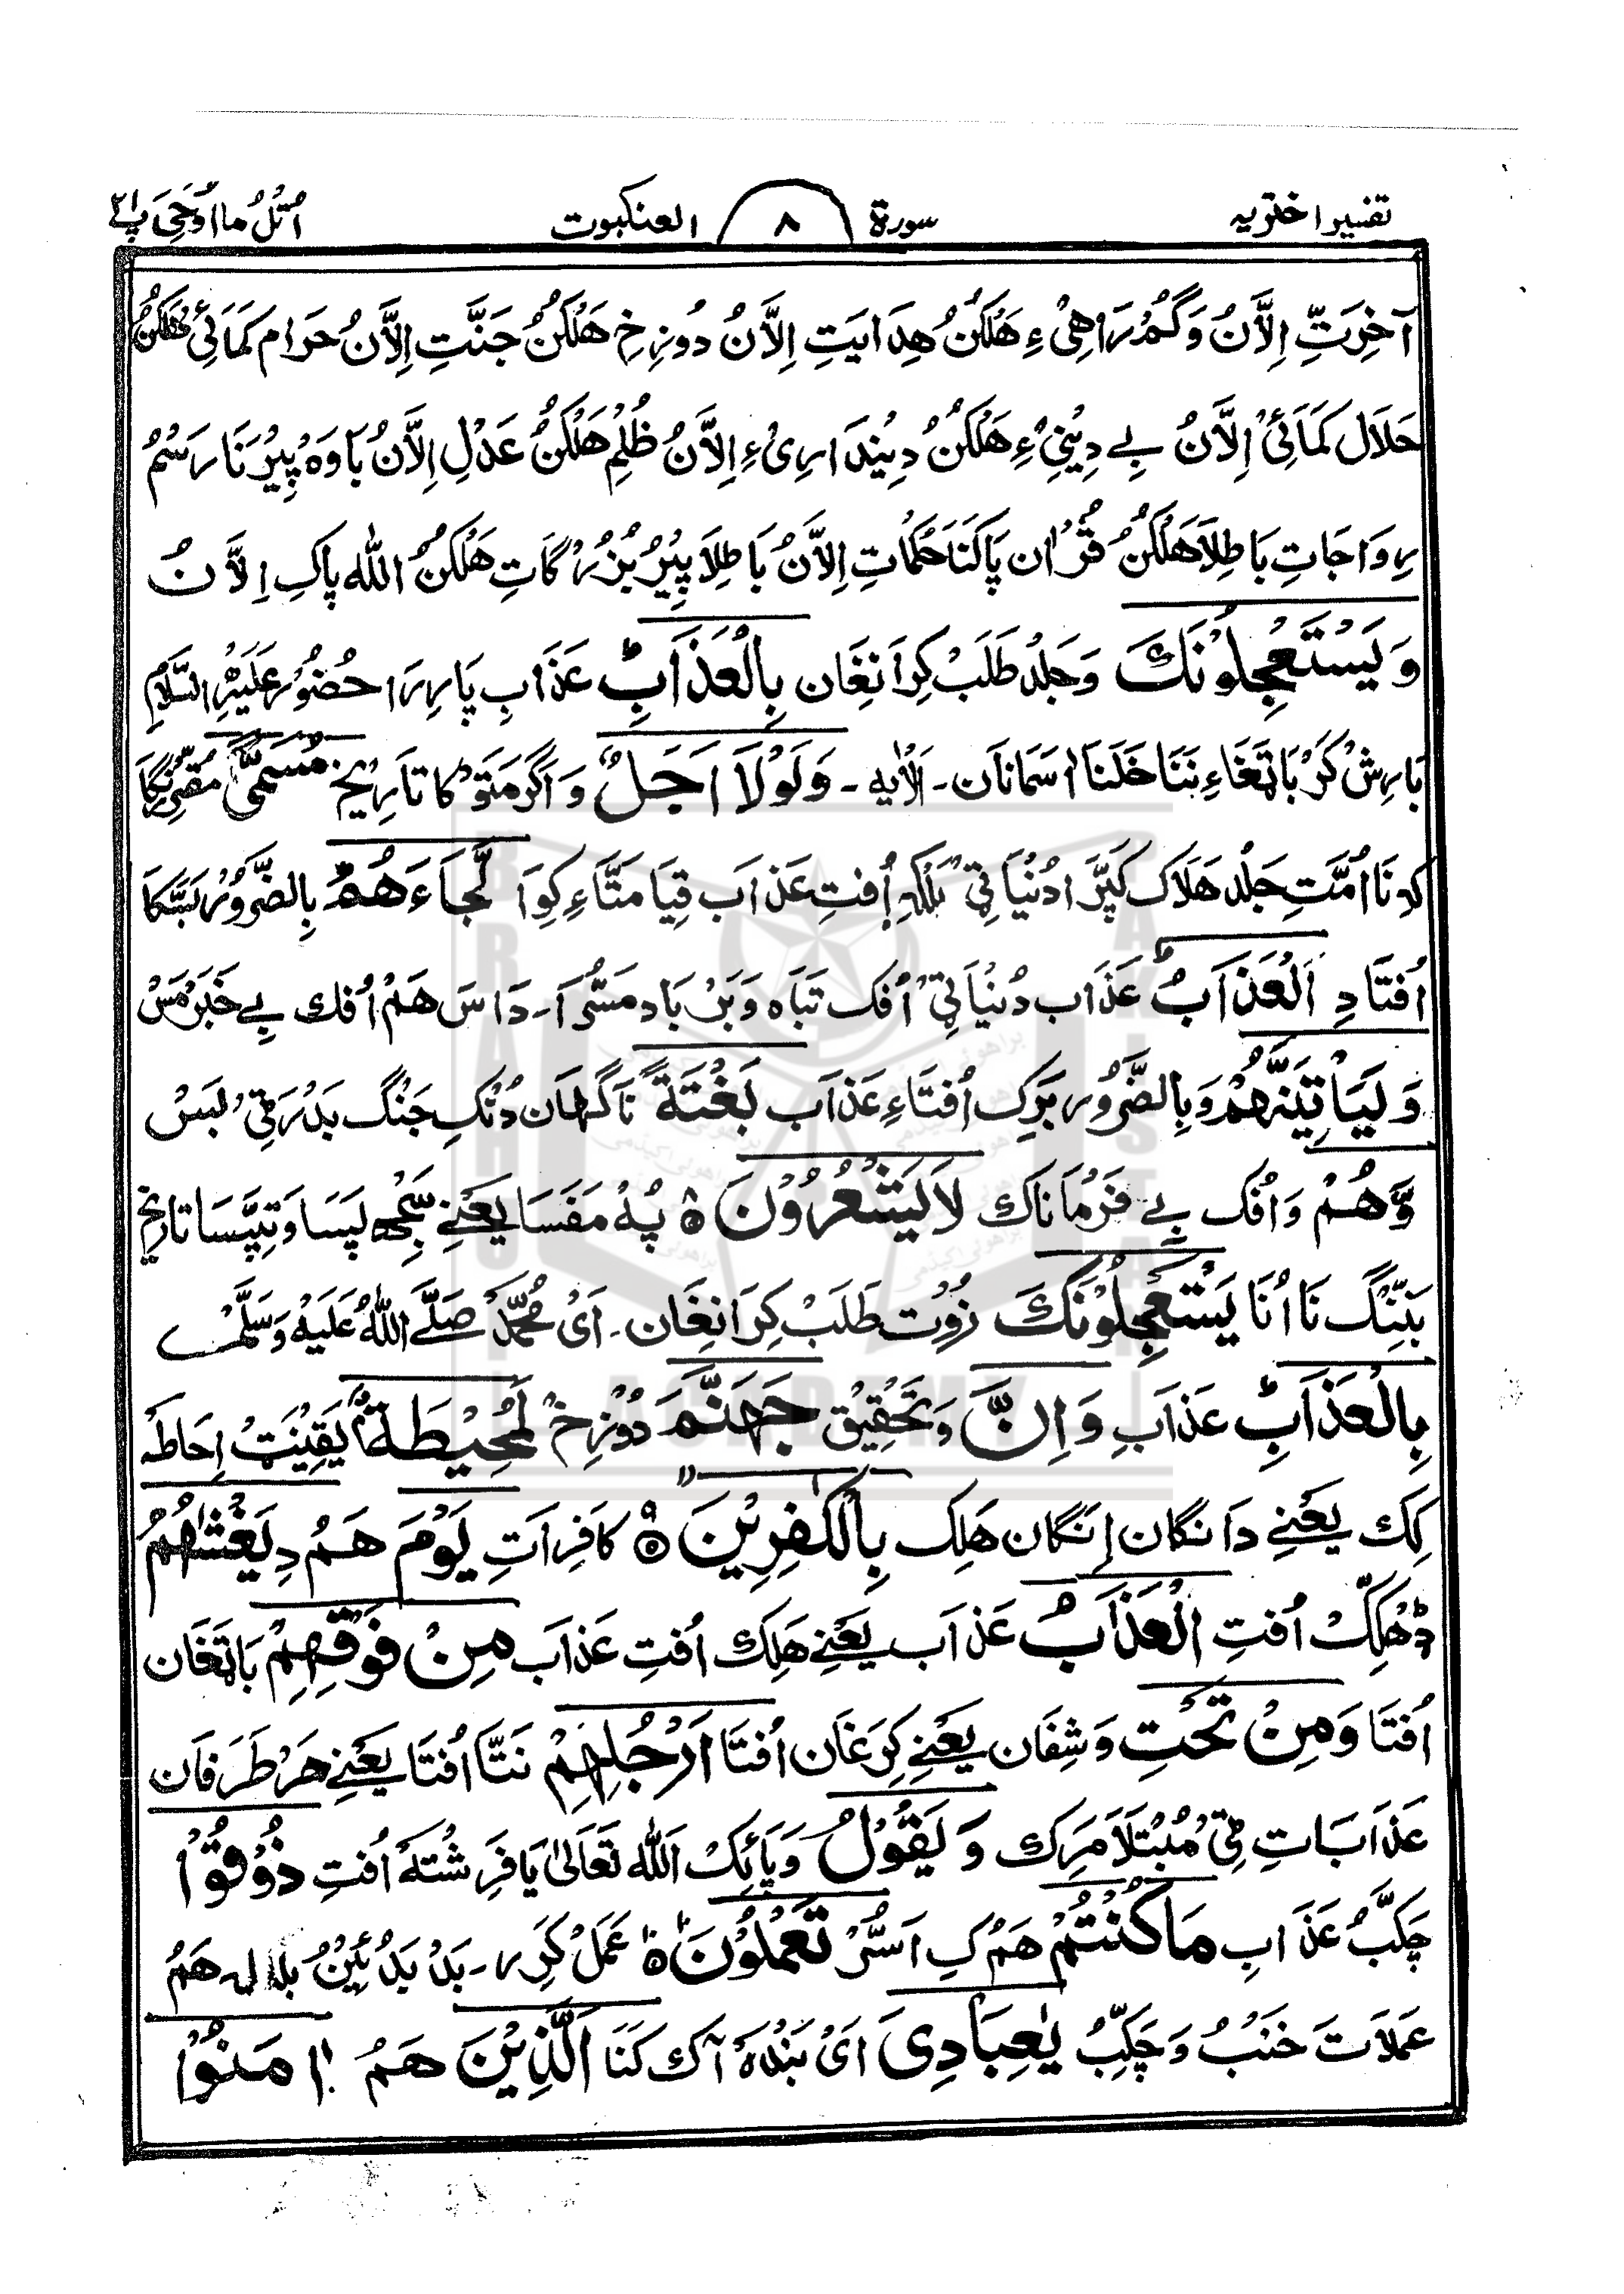 تفسیر اختریه سورة ٨ العنکبوت اُتْلُ مَا اُوحِیَ پ ٢١
آخِرَتِّ اِلَّانُ وَ گُمْرَاهِیْ ءِ هَلْکُنُ هِدَایَتِ اِلَّانُ دُوزِخِ هَلْکُنُ جَنَّتِ اِلَّانُ حَرَام کَمَائِی هَلْکُنُ
حَلَال کَمَائِیْ اِلَّانُ بِے دِیْنِیْ ءِ هَلْکُنُ دِیْندَارِیْ ءِ اِلَّانُ ظُلِمْ هَلْکُنُ عَدْلِ اِلَّانُ بَاوَہ پِیْرْنَا رَسْمُ
رِوَاجَاتِ بَاطِلَا هَلْکُنُ قُرْاٰن پَاکَنَا حُکْمَاتِ اِلَّانُ بَاطِلَا پِیْرُ بُزُرْگَاتِ هَلْکُنُ اللّٰه پاکِ اِلَّانُ
وَیَسْتَعْجِلُوْنَكَ وَجَلْد طَلَبْ کِرَا نِغَان بِالْعَذَابِ ط عَذَابِ پَارِرَا حُضُوْر عَلَیْهِ السَّلَامِ
بَارِشْ کَرْ بَاتْغَاءِ نَنَا خَلْنَا اٰسَمَانَان۔ اَلْاٰیه۔ وَلَوْلَا اَجَلٌ وَ اَگَرْ مَتَوْ کَا تَارِیْخ مُسَمًّی مُقَرَّرْنِگَا
کِه نَا اُمَّتِ جَلْد هَلَاک کَپَّرَ ا دُنْیَا ٹِی بَلْکِه اُفتِ عَذَاب قِیَامَتَّاءِ کِوَا لَجَآءَهُمُ بِالضَّرُوْر بَسَّکَا
اُفْتَادِ الْعَذَابُ ط عَذَاب دُنْیَا ٹِی اُفک تَبَاه وَبَرْ بَاد مَسُّرَ آ۔ دَاسَ هَمْ اُفك بِے خَبَرْ مَسْ
وَلَیَاْتِیَنَّهُمْ وَ بِالضَّرُوْر بَرِك اُفْتَاءِ عَذَاب بَغْتَةً نَاگَهَان دُنْكِ جَنْگ بَدْر ٹِی بَسْ
وَّهُمْ وَ اُفك بِے فَرْمَانَاك لَا یَشْعُرُوْنَ ٥ پُه مَفَسَا یَعْنِے سَجّه پَسَا وَ تِپَّسَا تَارِیخ
بَنِّنِگ نَا اُنَا یَسْتَعْجِلُوْنَكَ زُوْت طَلَبْ کِرَا نِغَان۔ اَیْ مُحَمَّد صَلَّے اللّٰهُ عَلَیْهِ وَسَلَّمْ
بِالْعَذَابِ ط عَذَابِ وَاِنَّ وَ تَحْقِیْق جَهَنَّمَ دُوْزِخ لَمُحِیْطَةٌۢ یَقِیْنَتْ اِحَاطَه
کِك یَعْنِے دَانگان اِنگان هَلِک بِالْکٰفِرِیْنَ ٥ کَافِرَاتِ یَوْمَ هَمُ دِ یَغْشٰهُمُ
ڈهْکِكْ اُفتِ الْعَذَابُ عَذَاب یَعْنِے هَلِك اُفتِ عَذَاب مِنْ فَوْقِهِمْ بَاتْغَان
اُفتَا وَمِنْ تَحْتِ وَ شِفَان یَعْنِے کِرَغَان اُفتَا اَرْجُلِهِمْ نَتَّا اُفتَا یَعْنِے هَرْ طَرَفَان
عَذَابَاتِ ٹِی مُبْتَلَا مَرِك وَیَقُوْلُ وَ پَائِكْ اَللّٰه تَعَالٰی یَا فَرِشْتَه اُفتِ ذُوْقُوْا
چَکِبُّ عَذَابِ مَا کُنْتُمْ هَمُ کِ اَسُّرْ تَعْمَلُوْنَ ٥ عَمَلْ کَرِر۔ بَدْ بَدُ ئِیْنُ بدلہ هَمُ
عَمَلَاتَ خَنْبُ وَ چَکِبُّ یٰعِبَادِیَ اَیْ بَنْدَه آك کَنَا الَّذِیْنَ هَمُ اٰمَنُوْا
BRAHUI
ACADEMY